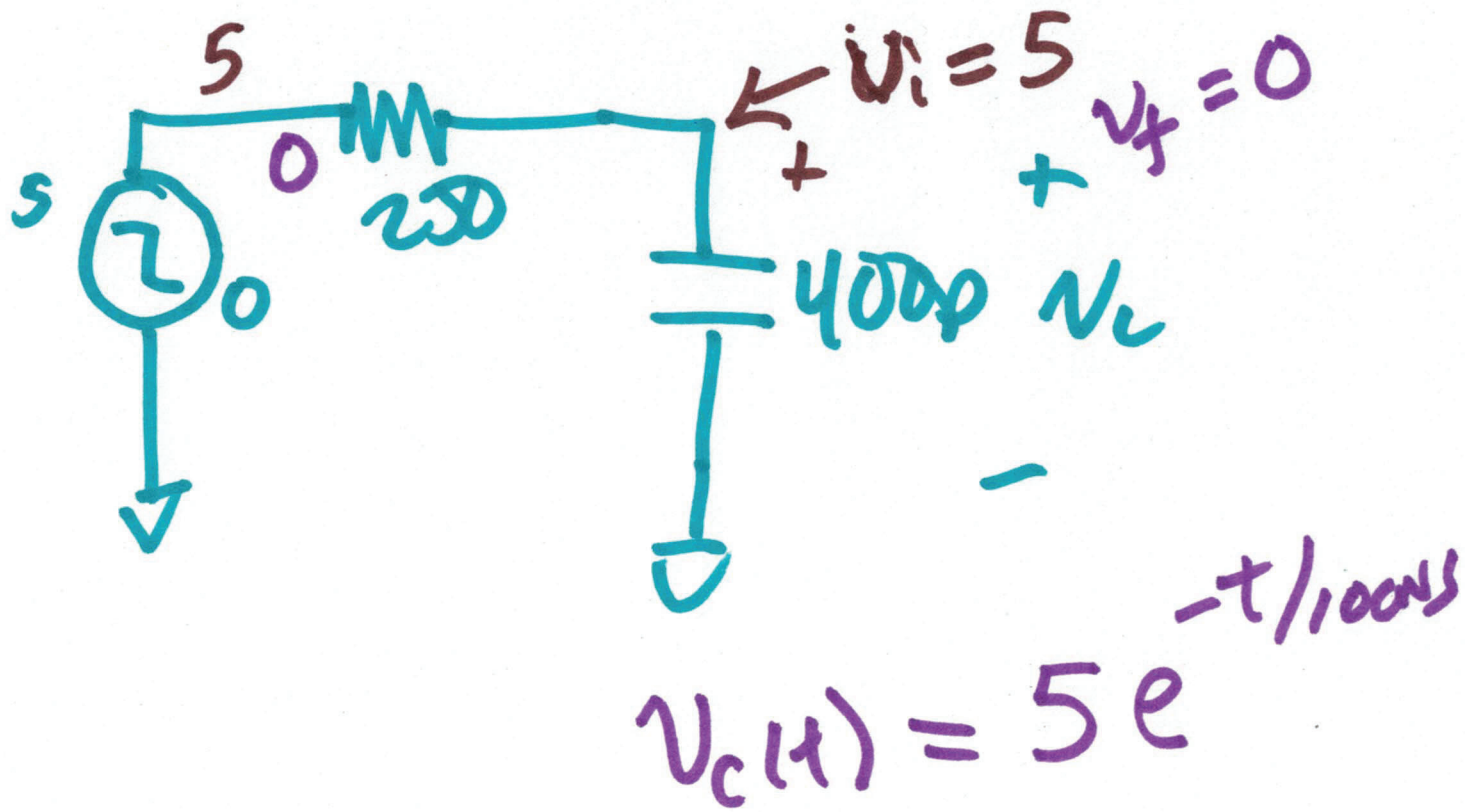 5
vi = 5
vf = 0
0
+
+
5
250
0
400p
vc
-
vc(t) = 5 e -t/100ns